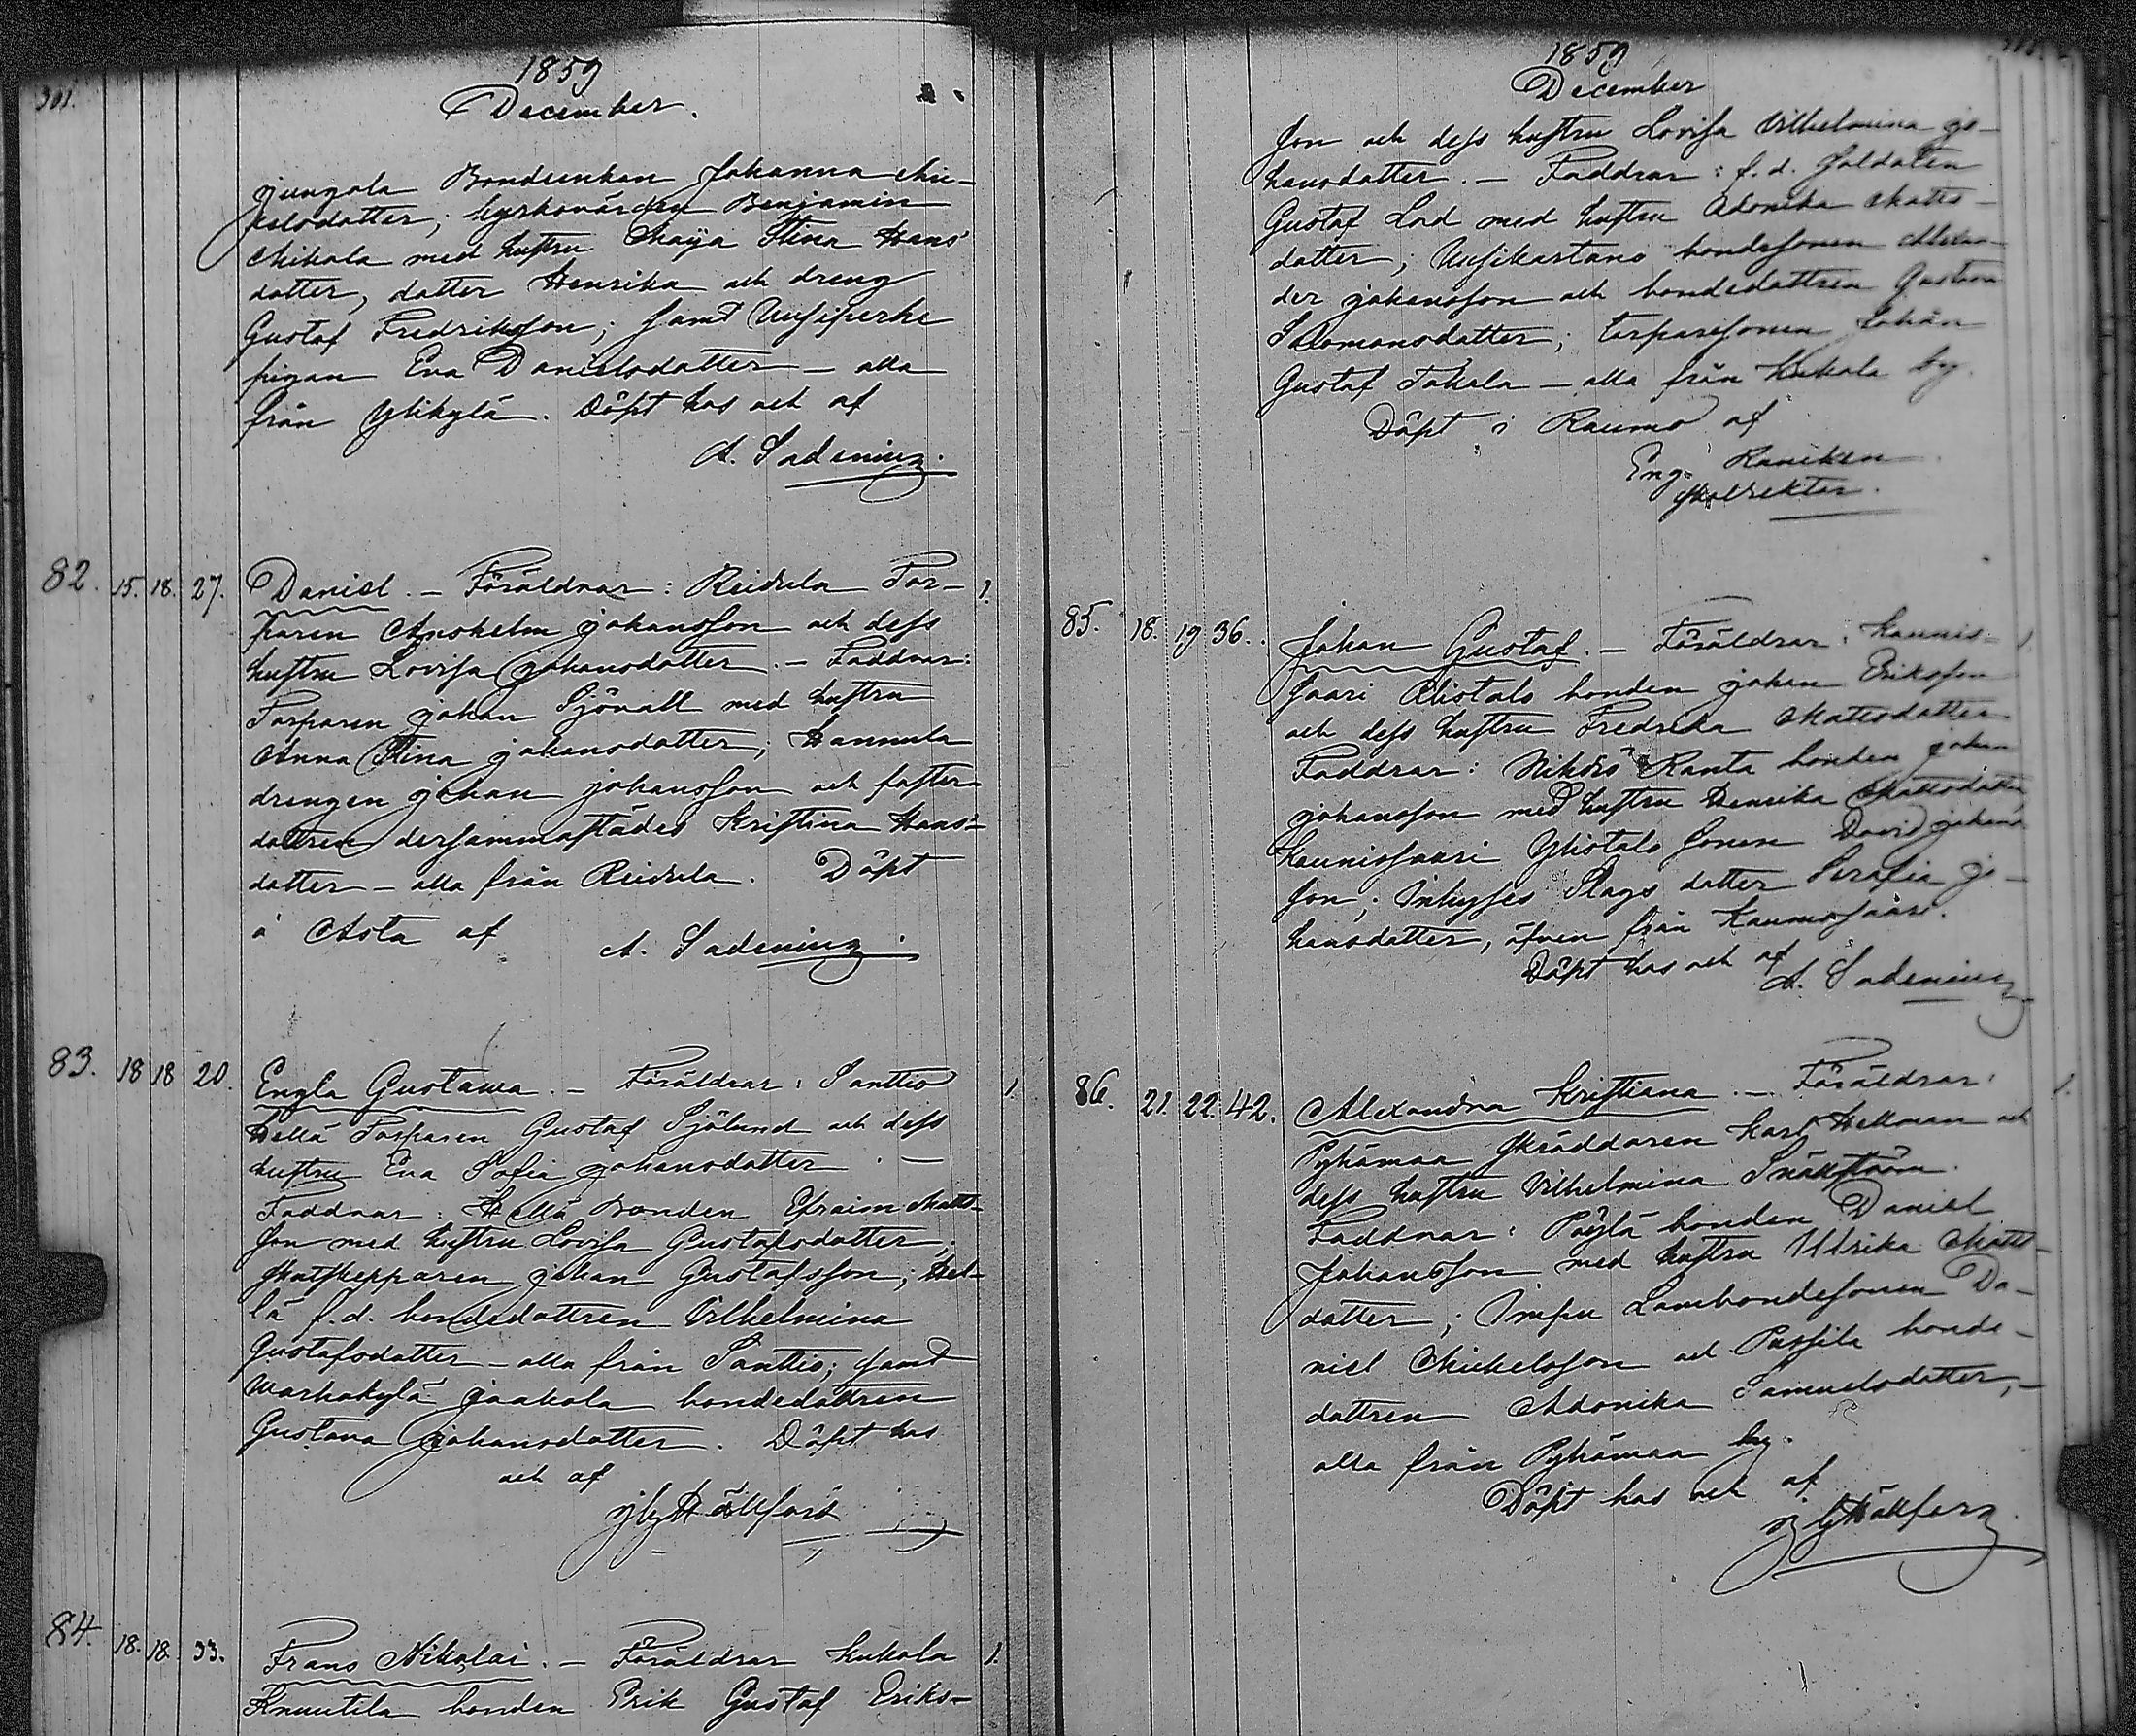 301.
1859
December.
gjungala Bondeenkan Johanna Mic-
kelsdatter; kyrkovärden Benjamin
Mikola med hustru Maja Stina Hans-
datter, datter Henrika och dreng
Gustaf Fredriksson; samt Uusiperhe
pigan Eva Danielsdatter – alla
från Ylikylä. Döpt hos och af
A. Sadenius.
82. 15. 18. 27. Daniel. – Föräldrar: Reidula Tor- 1.
paren Anshelm Johansson och dess
hustru Lovisa Johansdatter. – Faddrar:
Torparen Johan Sjövall med hustru
Anna Stina Johansdatter; Hannula
drengen Johan Johansson och foster-
dattren dersammastädes Kristina Hans-
datter – alla från Reidula. Döpt
à Asta af
A. Sadenius.
83. 18 18 20. Engla Gustawa. – Föräldrar: Santtio 1.
Hellä Torparen Gustaf Sjölund och dess
hustru Eva Sofia Johansdatter. –
Faddrar: Hellä Bonden Efraim Matts-
son med hustru Lovisa Gustafsdatter;
skutskepparen Johan Gustafsson; Hel-
lä f.d. bondedottren Vilhelmina
Gustafsdatter – alla från Santtio; samt
Warhokylä Jaakola bondedattren
Gustava Johansdatter. Döpt hos
och af
Hällfors
84. 18. 18. 33. Frans Nikolai. – Föräldrar Kukola 1.
Knuutila bonden Erik Gustaf Eriks-
1859
December
son och dess hustru Lovisa Vilhelmina Jo-
hansdatter. – Faddrar: f.d. Soldaten
Gustaf Lod med hustru Adonika Matts-
datter; Uusikartano bondesonen Alexan-
der Johansson och bondedattren Gustava
Salomonsdatter; torparesonen Johan
Gustaf Takala – alla från Kukola by.
Döpt i Raumo af
Eng. Raniken
Skolrektor.
85. 18. 19 36. Johan Gustaf. – Föräldrar: Kaunis- 1.
saari Alistalo bonden Johan Eriksson
och dess hustru Fredrika Mattsdatter
Faddrar: Nikkis Ranta bonden Johan
Johansson med hustru Henrika Mattsdatter,
Kaunissaari Ylistalo sonen David Johans-
son; Inhyses Slags datter Serafia Jo-
hansdatter, äfven från Kaunissaari.
Döpt hos och af
A. Sadenius
86. 21. 22. 42. Alexandra Kristiana. – Föräldrar: 1.
Pyhämaa Skräddaren Karl Hellman och
dess hustru Vilhelmina Snällström.
Faddrar: Pöylä bonden Daniel
Johansson med hustru Ulrika Matts-
datter; Impu Lambondesonen Da-
niel Mickelsson och Pussila bonde-
dattren Adonika Samuelsdatter, –
alla från Pyhämaa by.
Döpt hos och af
Hällfors